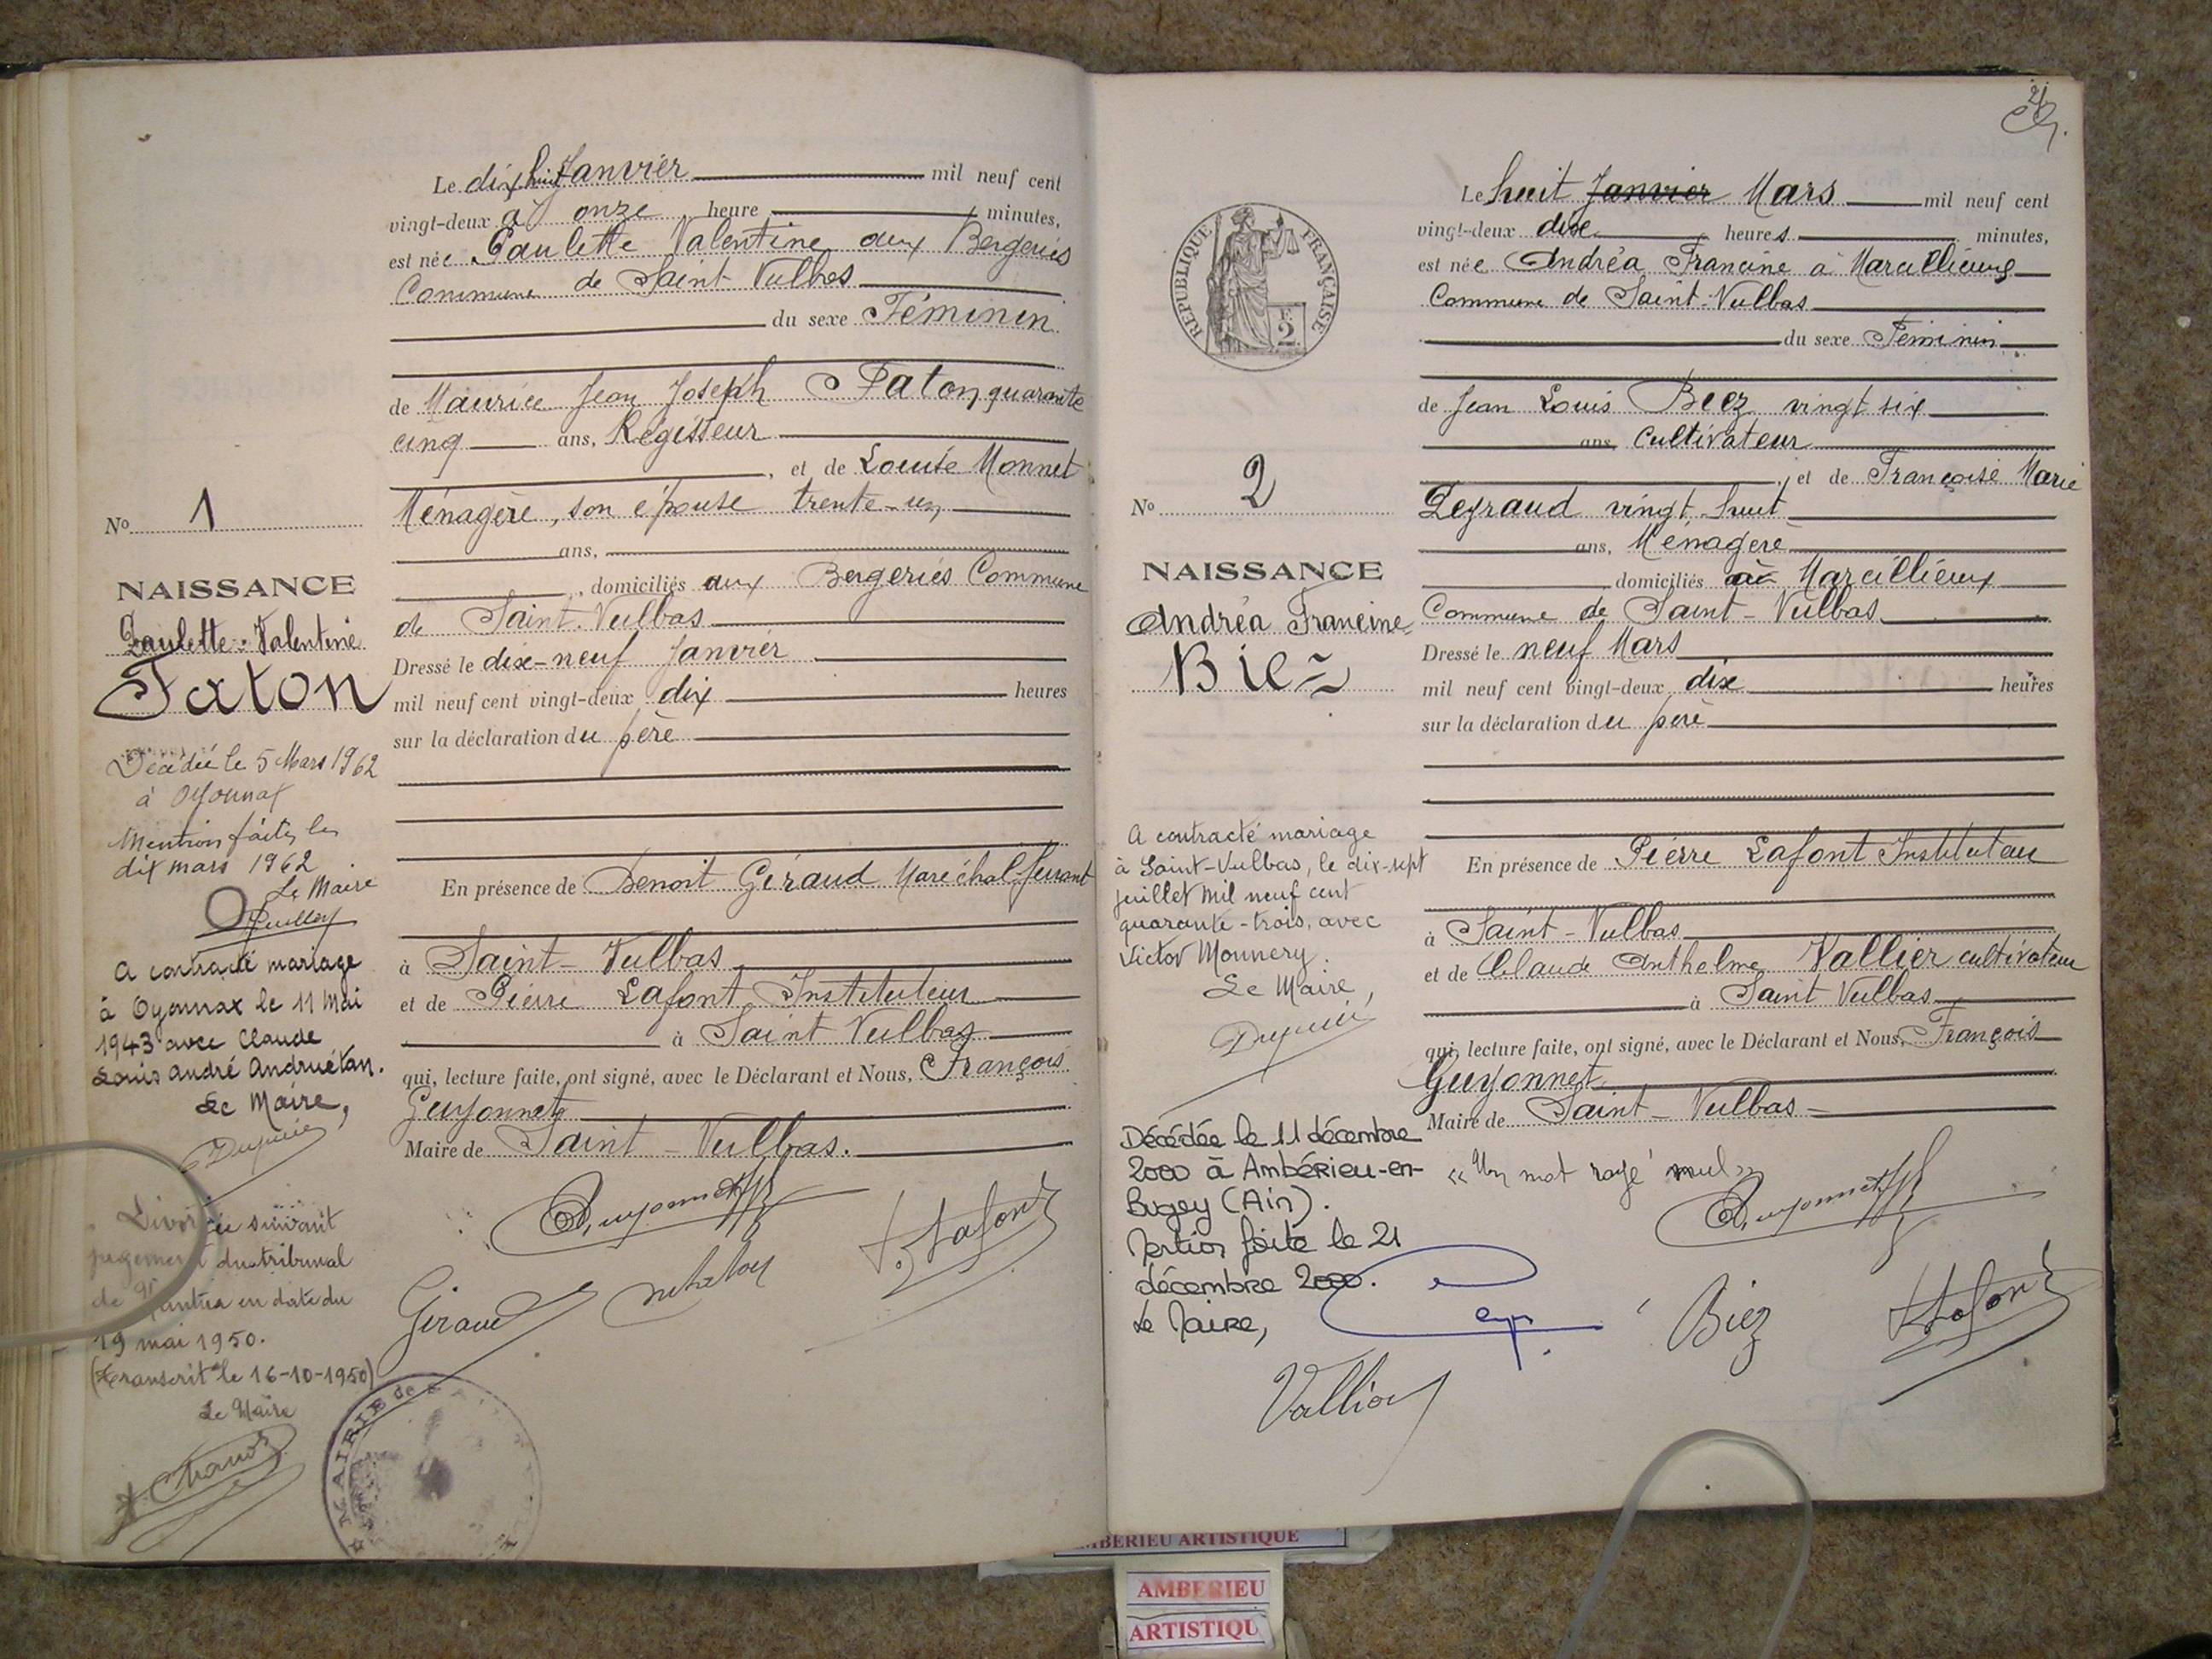 Le dix huit Janvier mil neuf cent
vingt-deux à onze heure minutes,
est née Paulette Valentine aux Bergeries
Commune de Saint Vulbas
du sexe Féminin
de Maurice Jean Joseph Taton quarante
cinq ans, Régisseur
, et de Louise Monnet
Ménagère, son épouse trente-un
ans,
, domiciliés aux Bergeries Commune
de Saint-Vulbas
Dressé le dix-neuf Janvier
mil neuf cent vingt-deux dix heures
sur la déclaration du père
En présence de Benoit Géraud Maréchal-ferrant
à Saint-Vulbas
et de Pierre Lafont Instituteur
à Saint Vulbas
qui, lecture faite, ont signé, avec le Déclarant et Nous, François
Guyonnet
Maire de Saint-Vulbas.
Guyonnet
Lafont
Giraud
No 1
NAISSANCE
Paulette-Valentine
Taton
Décédée le 5 Mars 1962
à Oyonnax
Mention faite, le
dix mars 1962
Le Maire
A contracté mariage
à Oyonnax le 11 Mai
1943 avec Claude
Louis André Andruétan.
Le Maire,
Divorcée suivant
jugement du tribunal
de Nantua en date du
19 mai 1950.
(Transcrit le 16-10-1950)
Le Maire
MAIRIE de
2
RÉPUBLIQUE FRANÇAISE
F.
2
Le huit Janvier Mars mil neuf cent
vingt-deux dix heures minutes,
est née Andréa Francine à Marcillieux
Commune de Saint-Vulbas
du sexe Féminin
de Jean Louis Biez vingt six
ans, Cultivateur
, et de Françoise Marie
Peyraud vingt huit
ans, Ménagère
domiciliés à Marcillieux
Commune de Saint-Vulbas
Dressé le neuf Mars
mil neuf cent vingt-deux dix heures
sur la déclaration du père
En présence de Pierre Lafont Instituteur
à Saint-Vulbas
et de Claude Anthelme Vallier cultivateur
à Saint Vulbas
qui, lecture faite, ont signé, avec le Déclarant et Nous, François
Guyonnet
Maire de Saint-Vulbas
« Un mot rayé nul »
Guyonnet
Biez
Lafont
Vallier
No 2
NAISSANCE
Andréa Francine
Biez
A contracté mariage
à Saint-Vulbas, le dix-sept
juillet mil neuf cent
quarante-trois, avec
Victor Monnery.
Le Maire,
Décédée le 11 décembre
2000 à Ambérieu-en-
Bugey (Ain).
Mention faite le 21
décembre 2000.
Le Maire,
AMBERIEU ARTISTIQUE
AMBERIEU
ARTISTIQU